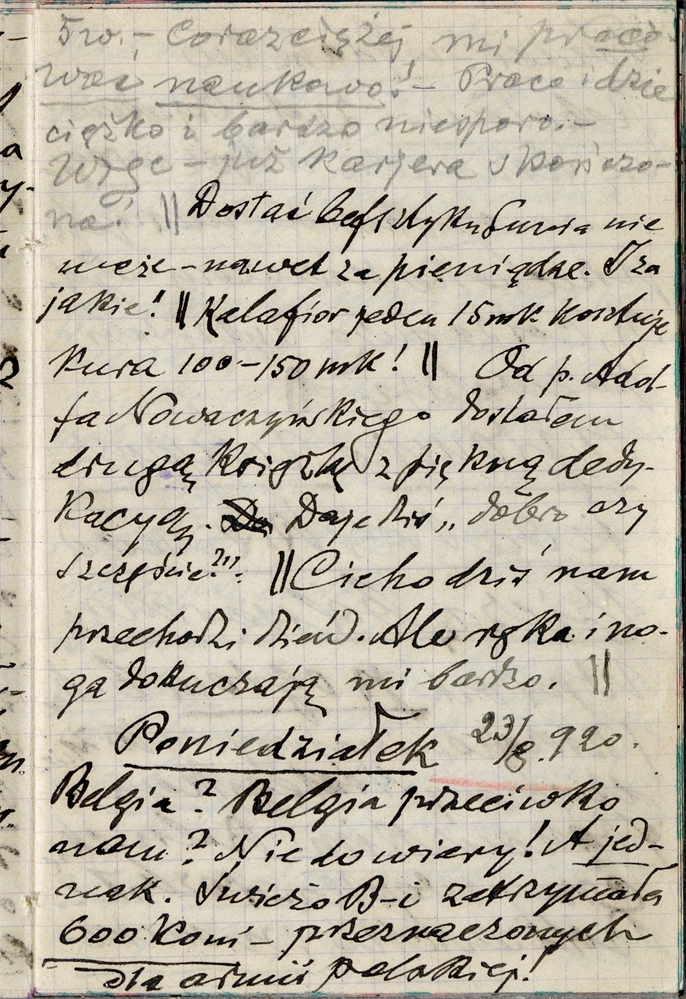 5w.- Coraz ciężej mi praco-
wać naukowo! - Praca idzie
ciężko i bardzo niesporo.-
Więc - już karjera skończo-
na! || Dostać befsztyku Gucia nie
może - nawet za pieniądze. I za
jakie! || Kalafior jeden 15 mk kosztuje
Kura 100-150 mk! || Od p. Adol-
fa Nowaczyńskiego dostałem
drugą książkę z piękną dedy-
kacyą. Daje dziś „dobro czy
szczęście?". || Cicho dziś nam
przechodzi dzień. Ale ręka i no-
ga dokuczają mi bardzo. ||
Poniedziałek 23/8.920.
Belgia? Belgia przeciwko
nam? Nie do wiary! A jed-
nak. Świeżo B-i zatrzymała
600 koni - przeznaczonych
dla armii polskiej!